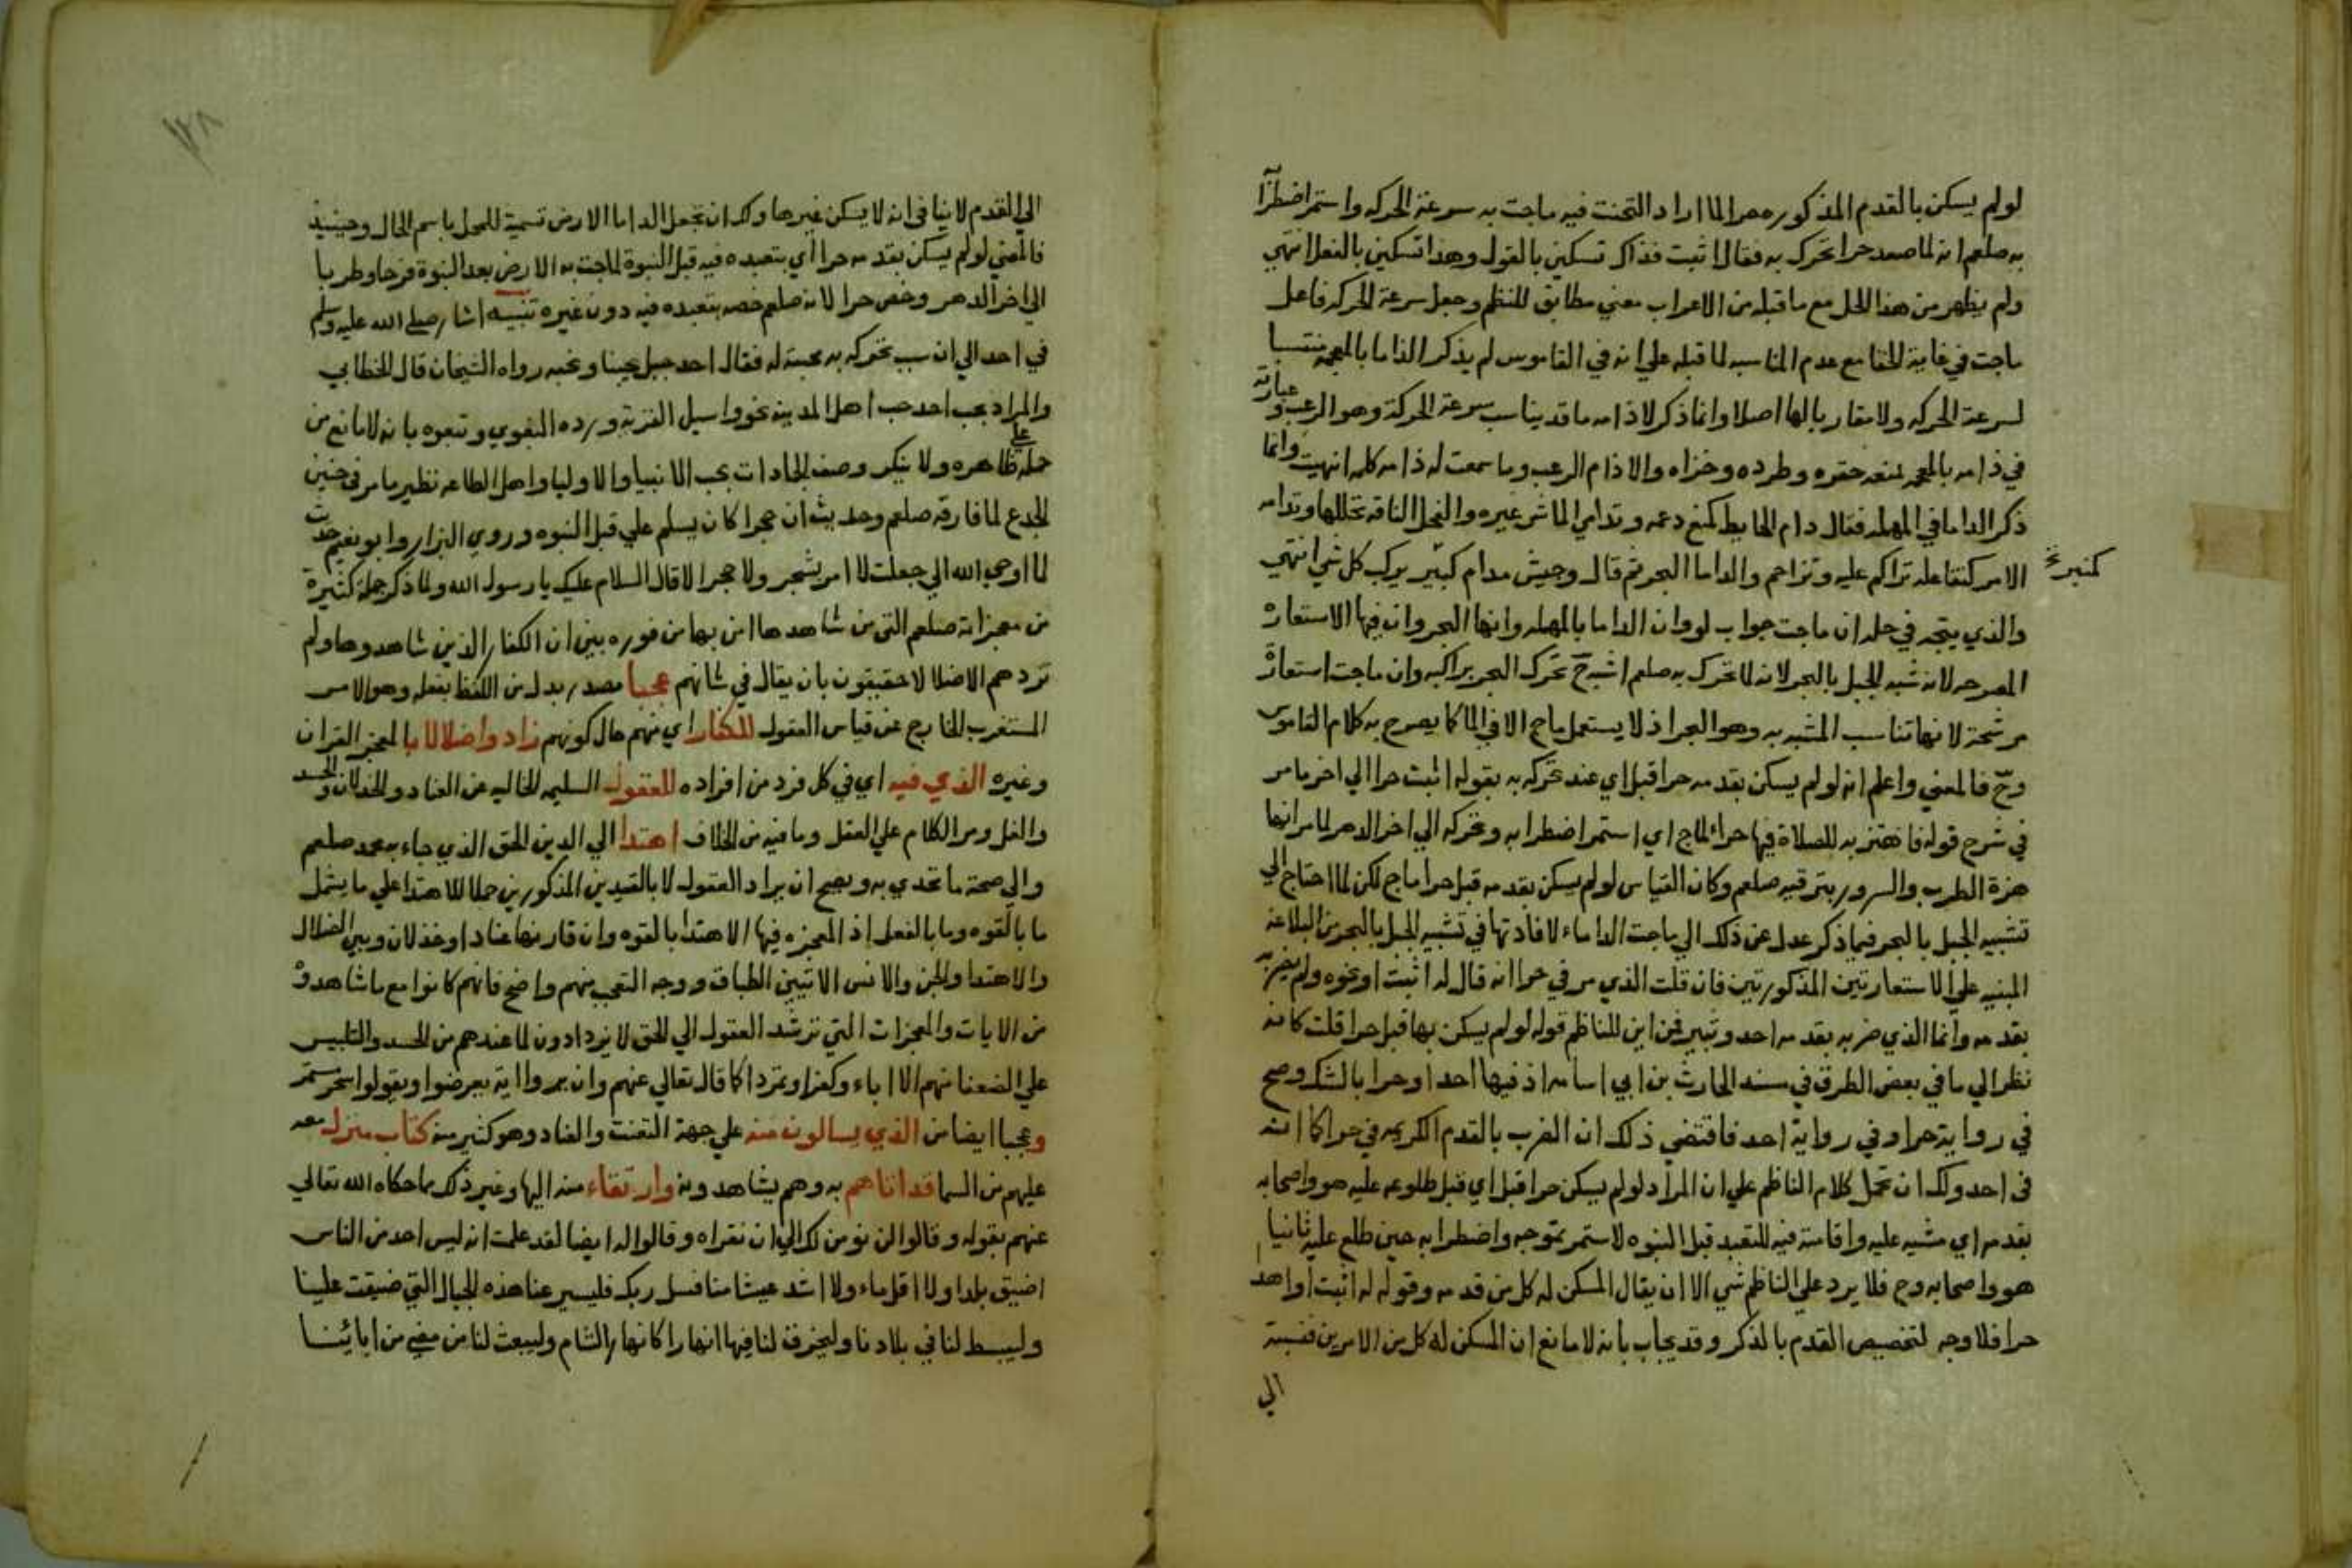 لولم يسكن بالقدم المذكوره حرا لما اراد التحنث فيه ماجت به سرعة الحركه واستمر اضطرابا
به صلعم انه لما صعد حرا تحرك به فقال اثبت فذاك تسكين بالقول وهذا تسكين بالفعل انتهي
ولم يظهر من هذا الحل مع ما قبله من الاعراب معني مطابق للنظم وجعل سرعة الحركه فاعل
ماجت في غاية الخفا مع عدم المناسبه لما قبله علي انه في القاموس لم يذكر الذاما بالمعجمه منتسبا
لسرعة الحركه ولا مقاربا لها اصلا وانما ذكر لاذامه ما قد يناسب سرعة الحركة وهو الرعب وعبارته
في ذامه بالمعجمه كمنعه حقره وطرده وخزاه والاذام الرعب وما سمعت له ذامه كلمه انتهيت وانما
ذكر الداما في المهمله فقال دام الحايط كمنع دعمه وتداام الما شي غيره والفحل الناقه تجللها وتدامه
الامر كتفاعله تراكم عليه وتزاحم والداما البحر ثم قال وجيش مدام كبير يركب كل شي انتهي
كثير نخ
والذي يتجه في حله ان ماجت جواب لو وان الداما بالمهمله وانها البحر وان فيها الاستعارة
المصرحه لانه شبه الجبل بالبحر لانه لما تحرك به صلعم اشبه ح تحرك البحر براكبه وان ماجت استعارة
مرشحة لانها تناسب المشبه به وهو البحر اذ لا يستعمل ماج الا في الما كما يصرح به كلام القاموس
وح فالمعني واعلم انه لولم يسكن بقدمه حرا قبل اي عند تحركه به بقوله اثبت حرا الي اخر ما مر
في شرح قوله فاهتز به للصلاة فيها حراء لماج اي استمر اضطرابه وتحركه الي اخر الدهر لما مر انها
هزة الطرب والسرور بترقيه صلعم وكان القياس لولم يسكن بقدمه قبل حرا ماج لكن لما احتاج الي
تشبيه الجبل بالبحر فيما ذكر عدل عن ذلك الي ماجت الداماء لافادتها في تشبيه الجبل بالبحر من البلاغه
المبنيه علي الاستعارتين المذكورتين فان قلت الذي مر في حرا انه قال له اثبت او نحوه ولم يضربه
بقدمه وانما الذي ضربه بقدمه احد وثبير فمن اين للناظم قوله لولم يسكن بها قبل حرا قلت كانه
نظر الي ما في بعض الطرق في مسند الحارث بن ابي اسامه اذ فيها احدا وحرا بالشك وصح
في رواية حرا وفي رواية احد فاقتضي ذلك ان الضرب بالقدم الكريمه في حرا كما انه
في احد ولك ان تحمل كلام الناظم علي ان المراد لولم يسكن حرا قبل اي قبل طلوعه عليه هو واصحابه
بقدمه اي مشيه عليه واقامته فيه للتعبد قبل النبوه لاستمر تموجه واضطرابه حين طلع عليه ثانيا
هو واصحابه وح فلا يرد علي الناظم شي الا ان يقال المسكن له كل من قدمه وقوله له اثبت او اهدا
حرا فلا وجه لتخصيص القدم بالذكر وقد يجاب بانه لا مانع ان المسكن له كل من الامرين فنسبة
الي
١٢٨
الي القدم لا ينافي انه لا يسكن غيرها ولك ان تجعل الداما الارض تسمية للمحل باسم الحال وحينيذ
فالمعني لولم يسكن بقدمه حرا اي بتعبده فيه قبل النبوة لماجت به الارض بعد النبوة فرحا وطربا
الي اخر الدهر وخص حرا لانه صلعم خصه بتعبده فيه دون غيره تنبيه اشار صلي الله عليه وسلم
في احد الي ان سبب تحركه به محبته له فقال احد جبل يحبنا ونحبه رواه الشيخان قال الخطابي
والمراد بحب احد حب اهل المدينه نحو واسيل القرية ورده البغوي وتبعوه بانه لا مانع من
حمله علي ظاهره ولا ينكر وصف الجمادات بحب الانبيا والاوليا واهل الطاعه نظير ما مر في حنين
الجدع لما فارقه صلعم وحديث ان حجرا كان يسلم علي قبل النبوه وروي البزار وابو نعيم حديث
لما اوحي الله الي جعلت لا امر بشجر ولا حجر الا قال السلام عليك يا رسول الله ولما ذكر جملة كثيرة
من معجزاته صلعم التي من شاهدها امن بها من فوره بين ان الكفار الذين شاهدوها ولم
تردهم الا ضلالا حقيقون بان يقال في شانهم عجبا مصدر بدل من اللفظ بفعله وهو الامر
المستغرب الخارج عن قياس العقول للكفار اي منهم حال كونهم زادوا ضلالا بالمعجز القران
وغيره الذي فيه اي في كل فرد من افراده للعقول السليمه الخاليه عن العناد والخذلان والحسد
والغل ومر الكلام علي العقل وما فيه من الخلاف اهتدا الي الدين الحق الذي جاء به محمد صلعم
والي صحة ما تحدي به ويصح ان يراد العقول لا بالقيدين المذكورين حملا للاهتدا علي ما يشمل
ما بالقوه وما بالفعل اذ المعجزه فيها الاهتدا بالقوه وان قارنها عناد او خذلان وبين الضلال
والاهتدا والجن والانس الاتيين الطباق ووجه التعجب منهم واضح فانهم كانوا مع ما شاهدوه
من الايات والمعجزات التي ترشد العقول الي الحق لا يزدادون لما عندهم من الحسد والتلبيس
علي الضعفا منهم الا اباء وكفرا وتمردا كما قال تعالي عنهم وان يروا اية يعرضوا ويقولوا سحر مستمر
وعجبا ايضا من الذي يسالون منه علي جهة التعنت والعناد وهو كثير منه كتاب منزل معه
عليهم من السما قد اتاهم به وهم يشاهدونه وارتقاء منه اليها وغير ذلك مما حكاه الله تعالي
عنهم بقوله وقالوا لن نومن لك الي ان نقراه وقالوا له ايضا لقد علمت انه ليس احد من الناس
اضيق بلدا ولا اقل ماء ولا اشد عيشا منا فسل ربك فليسير عنا هذه الجبال التي ضيقت علينا
وليبسط لنا في بلادنا وليخرق لنا فيها انهارا كانهار الشام وليبعث لنا من مضي من ابائنا